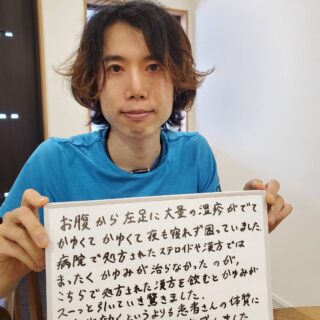 お腹から左足に大量の湿疹がでて
かゆくて かゆくて夜も寝れず困っていました.
病院で処方されたステロイドや漢方では
まったく かゆみが治らなかったのが,
こちらで処方された漢方を飲むとかゆみが
スーっと引いていき驚きました.
というよりも患者さんの体質に